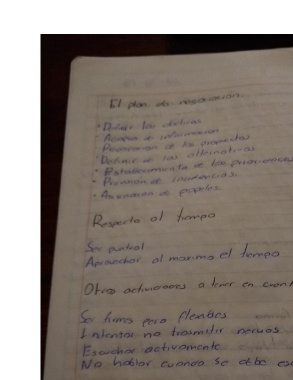 El plan de negociación
• Definir los objetivos
• Acopio de información
• Preparación de las propuestas
• Definir de las alternativas
• Establecimiento de las prioridades
• Previsión de incidencias
• Asignación de papeles.
Respecto al tiempo
Ser puntual
Aprovechar al maximo el tiempo
Otras actividades a tener en cuent
Ser firmes pero flexibles
Intentar no trasmitir nervios
Escuchar activamente
No hablar cuando se debe es